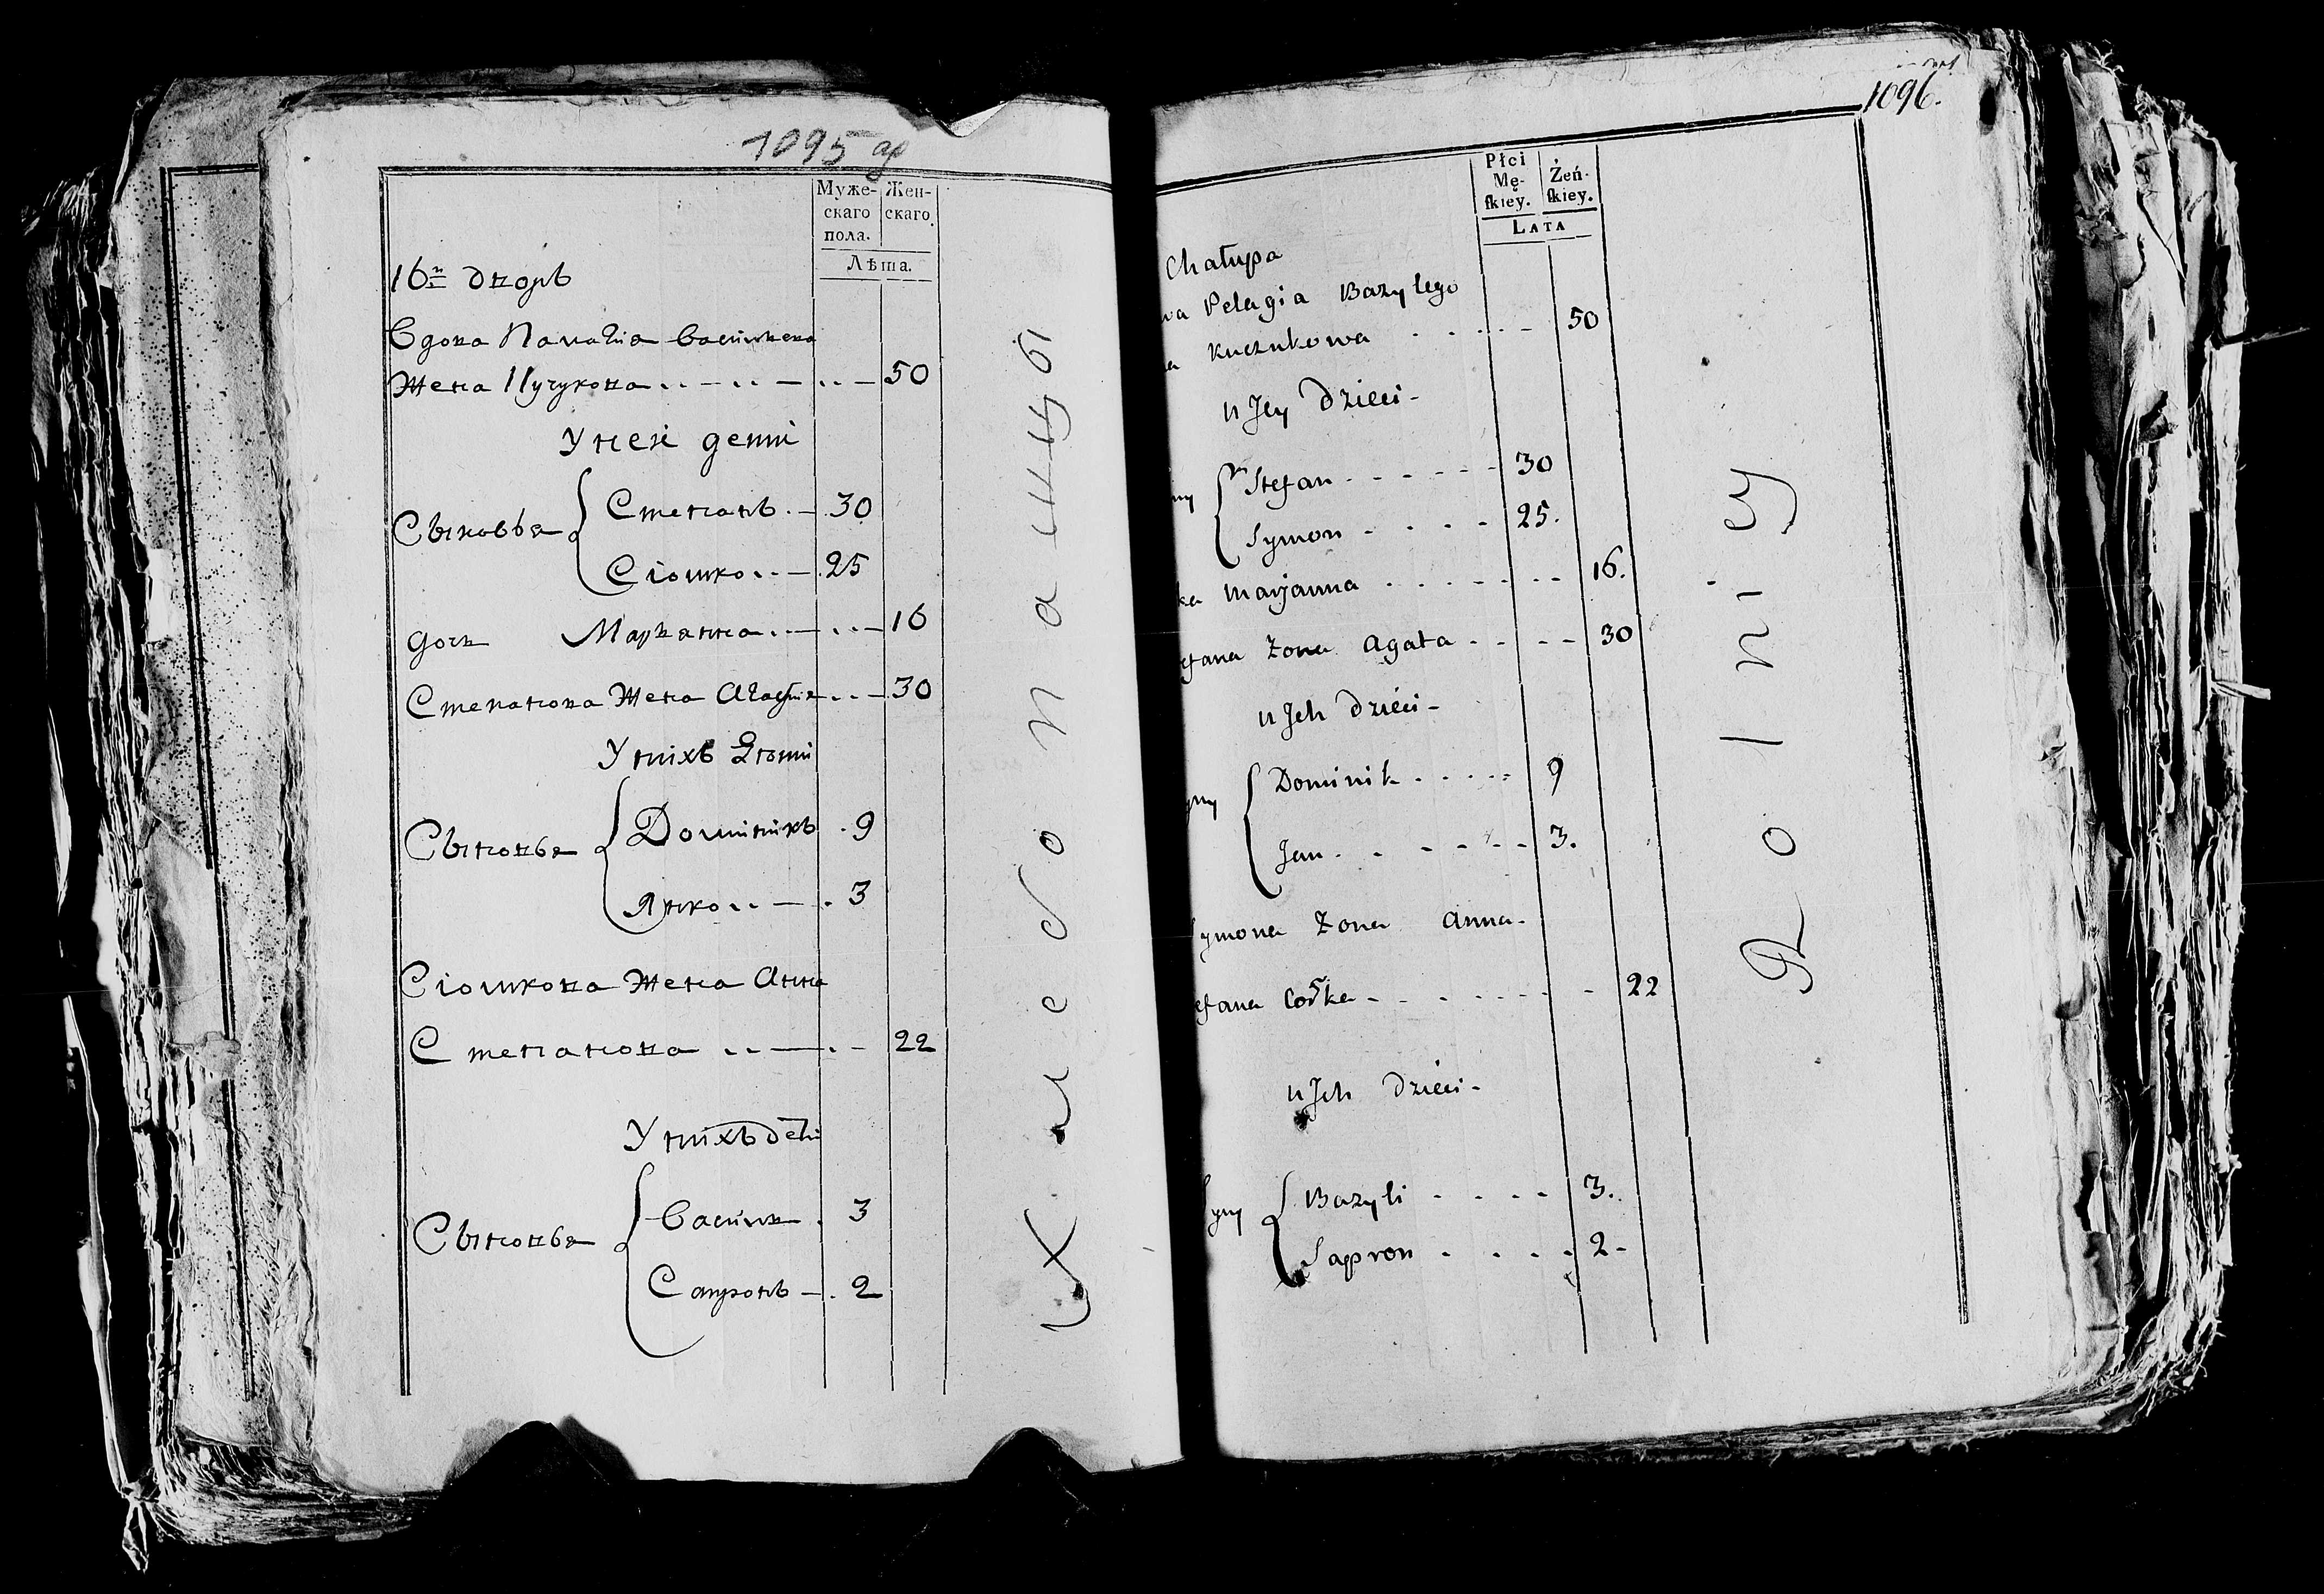 1095 ар
Муже-
скаго
пола.
Жен-
скаго.
Лѣта.
16й дворъ
Вдова Палагiя Василева
Жена Кучукова 50
У неи дети
Сыновья { Степанъ 30
Сiомко 25
дочь Марьянна 16
Степанова Жена Агафiя 30
У нихъ дѣти
Сыновья { Доминикъ 9
Янко 3
Сiомкова Жена Анна
Степанова 22
У нихъ дети
Сыновья { Василь 3
Сапронъ 2
Хлебопашцы
1096.
Płci
Mę-
ſkiey.
Żeń-
ſkiey.
LATA
Chałupa
wa Pelagia Bazylego
a Kuczukowa 50
u Jey Dzieci
ny { Stefan 30
Symon 25.
ka Maryanna 16.
efana Żona Agata 30
u Jch Dzieci
yny { Dominik 9
Jan 3.
ymona Żona Anna
efana Corka 22
u Jch Dzieci
Syny { Bazyli 3.
Sapron 2
Rolnicy